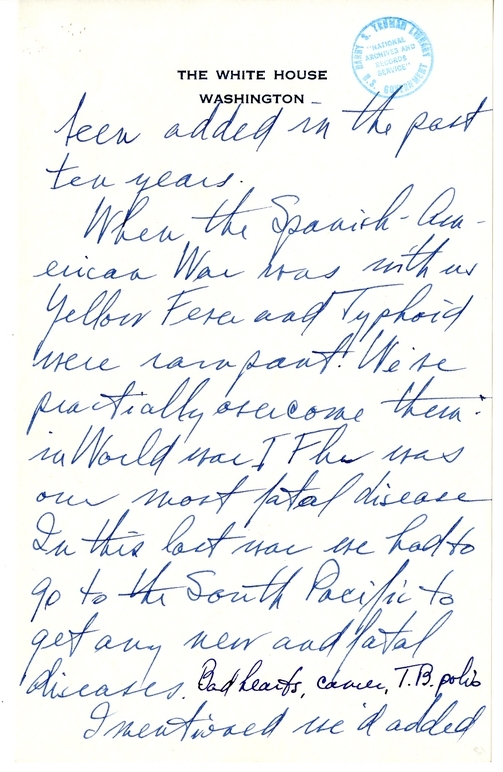 HARRY S. TRUMAN LIBRARY
"NATIONAL
ARCHIVES AND
RECORDS
SERVICE"
U.S. GOVERNMENT
THE WHITE HOUSE
WASHINGTON
been added in the past
ten years.
When the Spanish-Am-
erican War was with us
Yellow Fever and Typhoid
were rampant. We've
practically overcome them.
in World war I Flu was
our most fatal disease
In this last war we had to
go to the South Pacific to
get any new and fatal
diseases. Bad hearts, cancer, T.B. polio
I mentioned we'd added